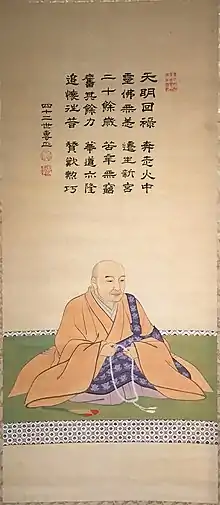 天明回祿 奔走火中
靈佛無恙 遷坐新宮
二十餘歲 苦辛無窮
舊其餘力 華道亦隆
追懷往昔 贊歎勲巧
四十二世專正